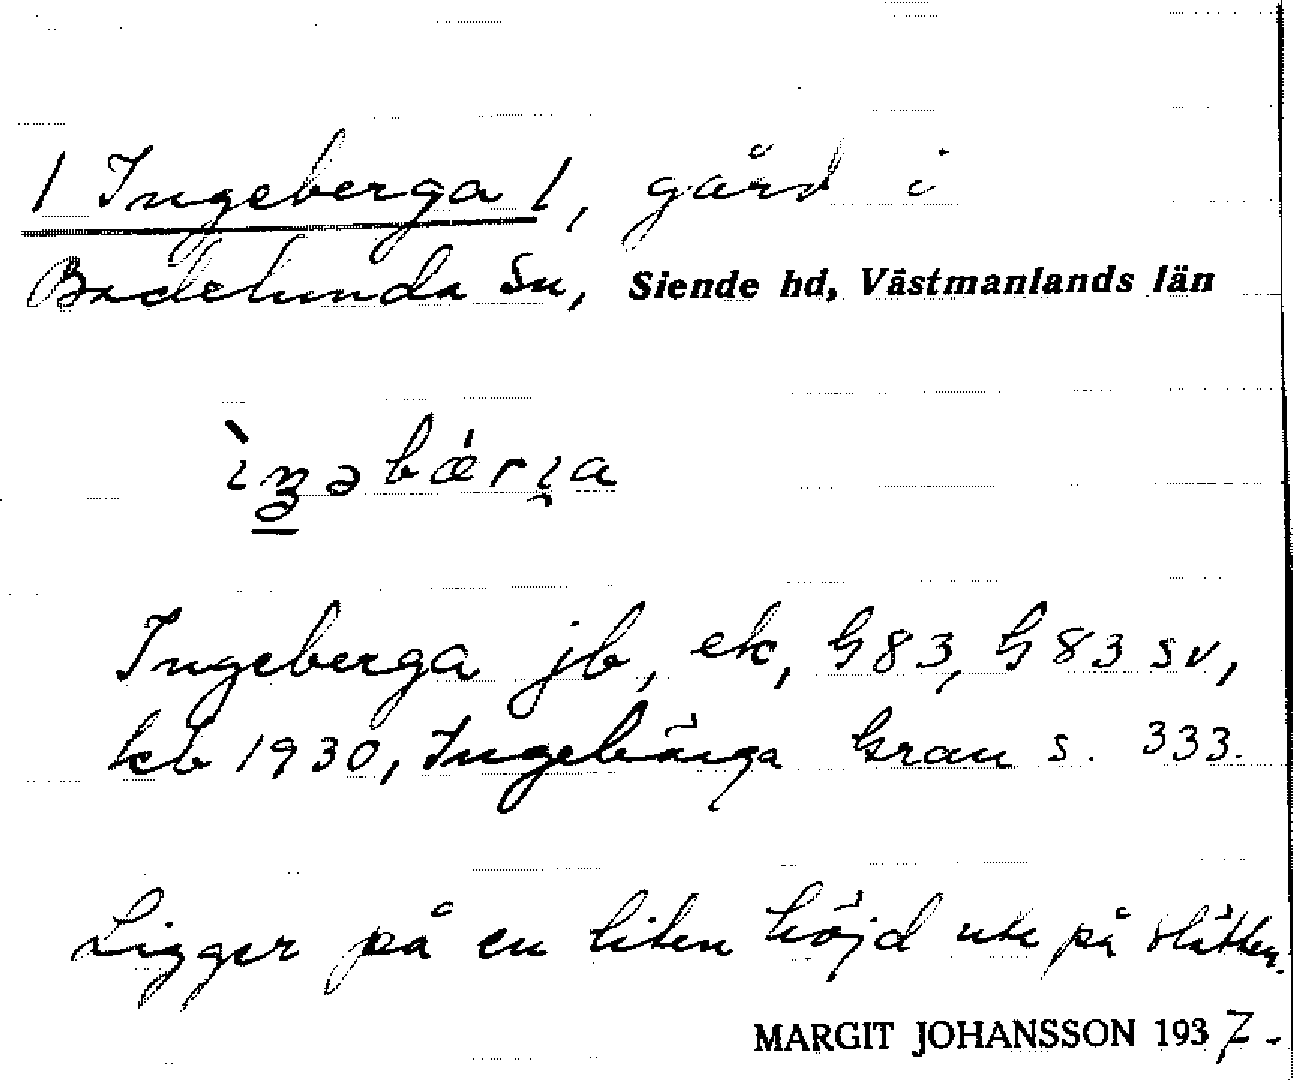 / Ingeberga /, gård i
Badelunda sn, Siende hd, Västmanlands län
ìŋəbǽrɪ̯a
Ingeberga jb, ek, G83, G83 sv,
kb 1930, Ingebärga Grau s. 333.
Ligger på en liten höjd ute på slätten.
MARGIT JOHANSSON 1937.